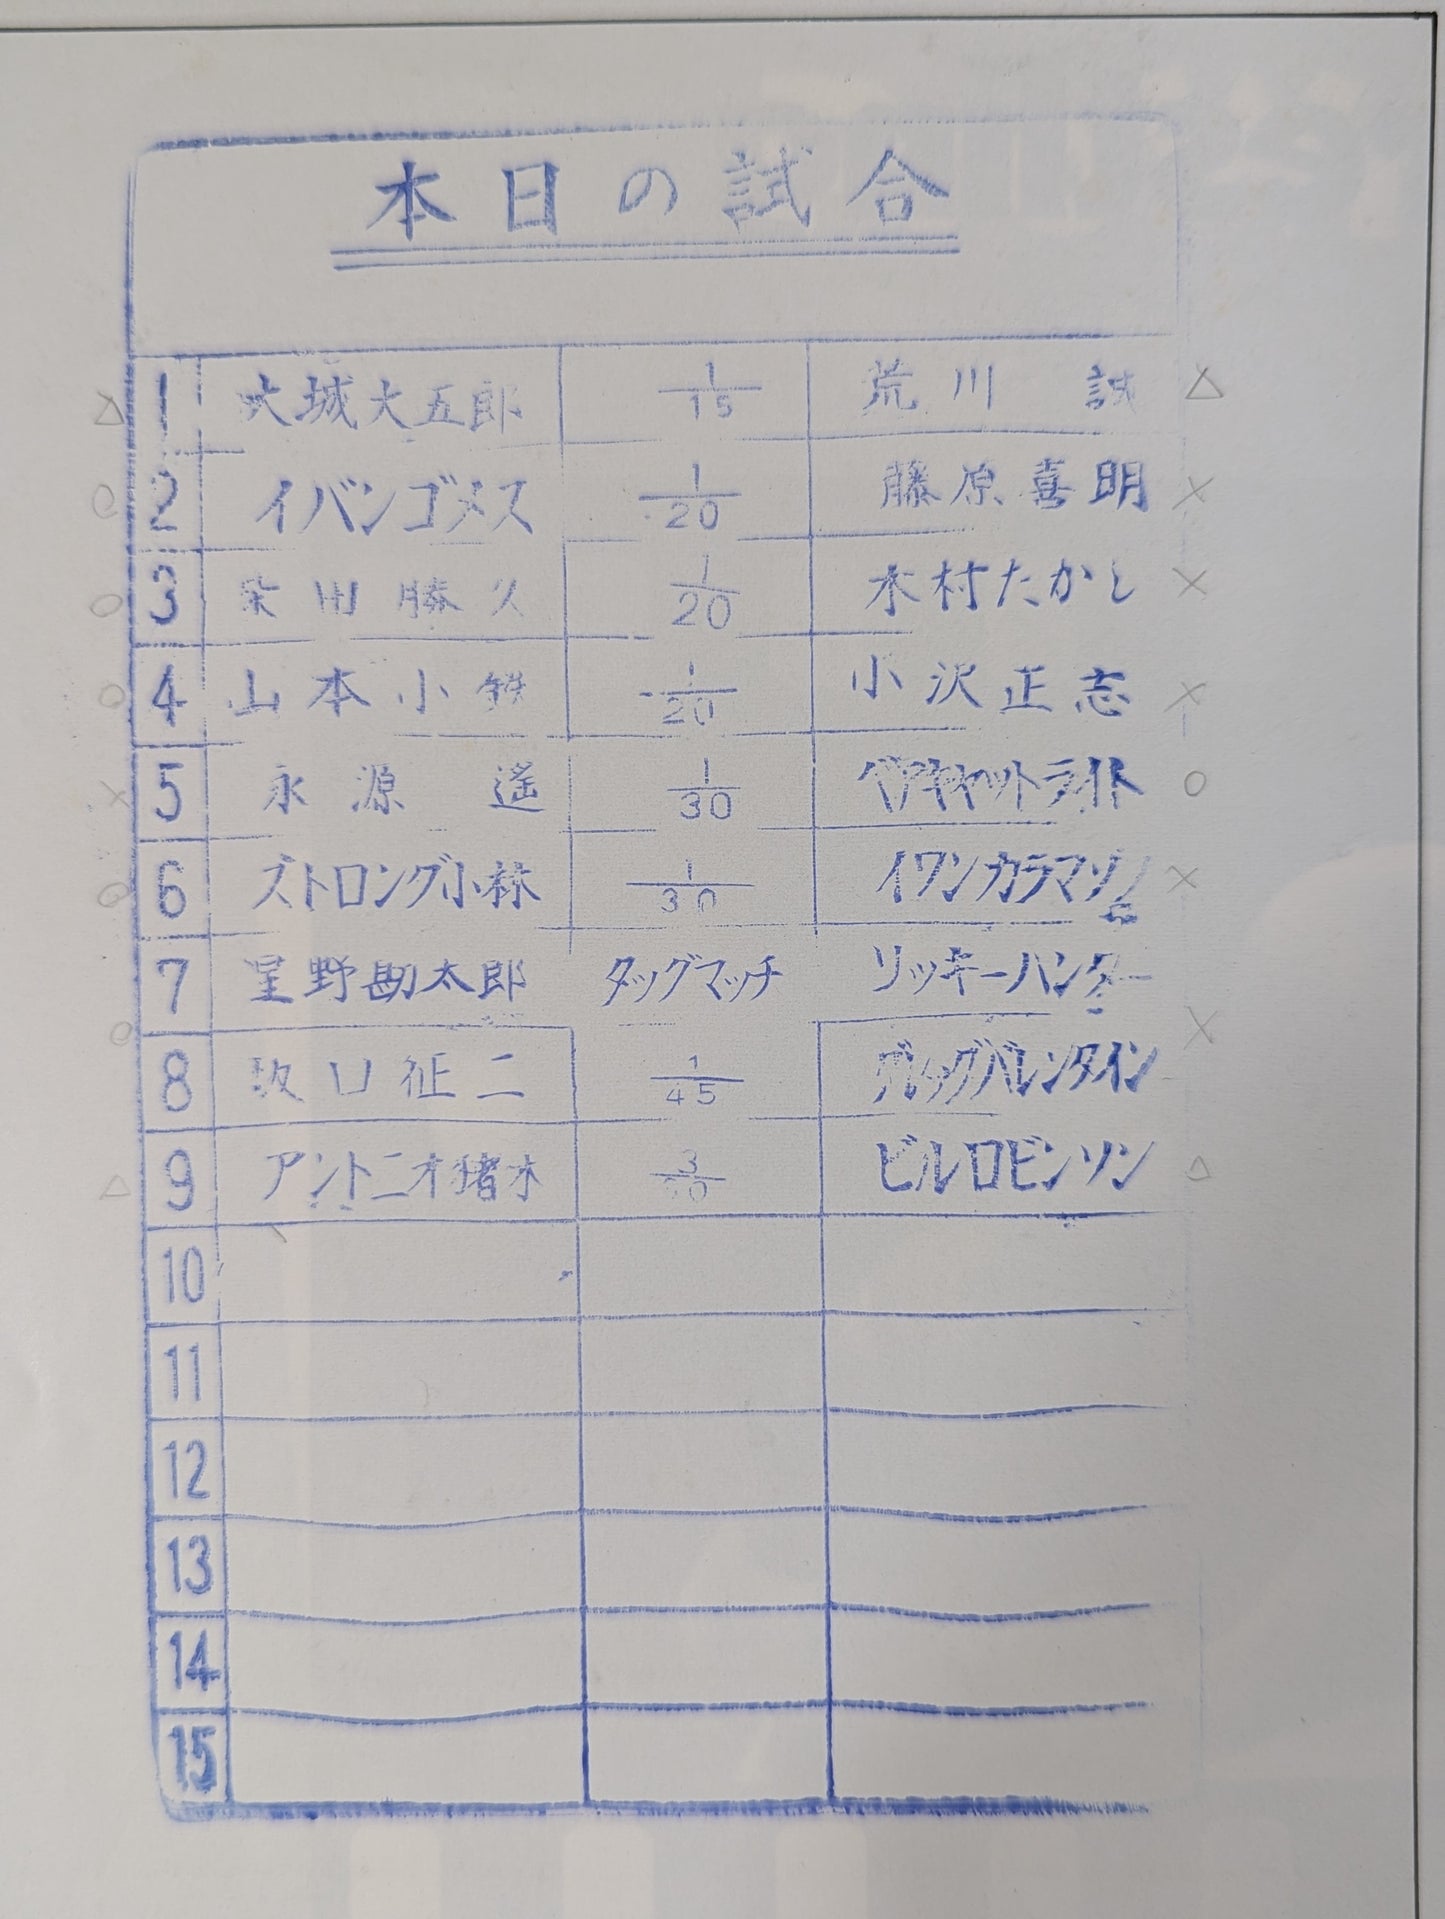 本日の試合
△ 1 大城大五郎 1/15 荒川 誠 △
○ 2 イバンゴメス 1/20 藤原喜明 ×
○ 3 柴田勝久 1/20 木村たかし ×
○ 4 山本小鉄 1/20 小沢正志 ×
× 5 永源 遙 1/30 ベアキャットライト ○
○ 6 ストロング小林 1/30 イワンカラマゾフ ×
7 星野勘太郎 タッグマッチ リッキーハンター
○ ×
8 坂口征二 1/45
9 アントニオ猪木 ビルロビンソン △
△
10
11
12
13
14
15